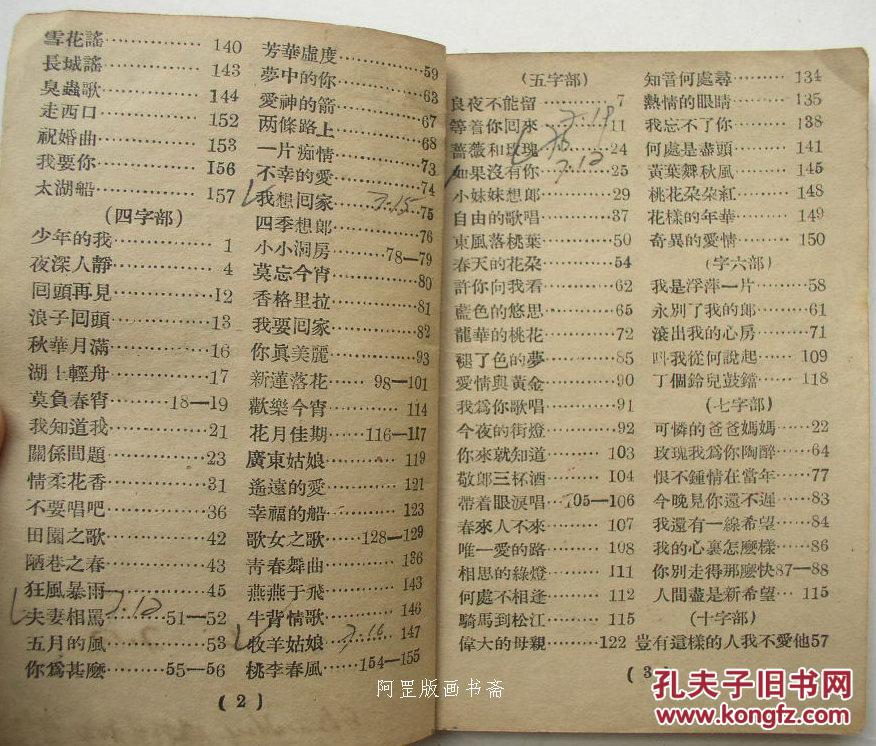 雪花謠 140
長城謠 143
臭蟲歌 144
走西口 152
祝婚曲 153
我要你 156
太湖船 157
(四字部)
少年的我 1
夜深人靜 4
回頭再見 12
浪子回頭 13
秋華月滿 16
湖上輕舟 17
莫負春宵 18—19
我知道我 21
關係問題 23
情柔花香 31
不要唱吧 36
田園之歌 42
陋巷之春 43
狂風暴雨 45
夫妻相罵 51—52
五月的風 53
你爲甚麽 55—56
芳華虛度 59
夢中的你 63
愛神的箭 67
两條路上 68
一片痴情 73
不幸的愛 74
我想回家 7.15 75
四季想郎 76
小小洞房 78—79
莫忘今宵 80
香格里拉 81
我要回家 82
你眞美麗 93
新蓮落花 98—101
歡樂今宵 114
花月佳期 116—117
廣東姑娘 119
遙遠的愛 121
幸福的船 123
歌女之歌 128—129
靑春舞曲 136
燕燕于飛 143
牛背情歌 146
牧羊姑娘 7.16 147
桃李春風 154—155
(2)
(五字部)
良夜不能留 7
等着你回來 11
薔薇和玫瑰 24
如果沒有你 25
小妹妹想郎 29
自由的歌唱 37
東風落桃葉 50
春天的花朶 54
許你向我看 62
藍色的悠思 65
龍華的桃花 72
褪了色的夢 85
愛情與黃金 90
我爲你歌唱 91
今夜的街燈 92
你來就知道 103
敬郎三杯酒 104
帶着眼淚唱 105—106
春來人不來 107
唯一愛的路 108
相思的綠燈 111
何處不相逢 112
騎馬到松江 115
偉大的母親 122
知音何處尋 134
熱情的眼睛 135
我忘不了你 138
何處是盡頭 141
黃葉舞秋風 145
桃花朶朶紅 148
花樣的年華 149
奇異的愛情 150
(字六部)
我是浮萍一片 58
永別了我的郎 61
滾出我的心房 71
叫我從何說起 109
丁個鈴兒鼓鐺 118
(七字部)
可憐的爸爸媽媽 22
玫瑰我爲你陶醉 64
恨不鍾情在當年 77
今晚見你還不遲 83
我還有一線希望 84
我的心裏怎麽樣 86
你別走得那麽快 87—88
人間盡是新希望 115
(十字部)
豈有這樣的人我不愛他 57
(3)
阿罡版画书斋
孔夫子旧书网
www.kongfz.com